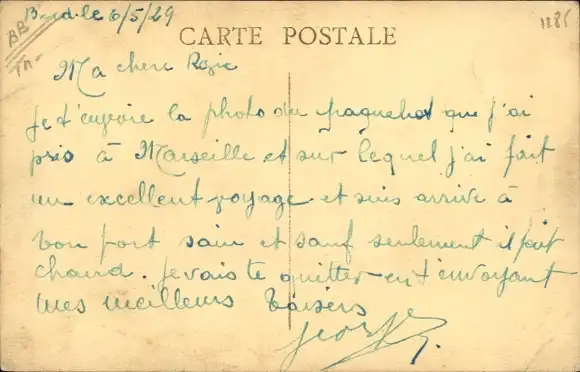 le 6/5/29
1185
BB
CARTE POSTALE
Ma chere
Je t'envoie la photo du paquebot que j'ai
pris à Marseille et sur lequel j'ai fait
un excellent voyage et suis arrivé à
bon port sain et sauf seulement il fait
chaud. Je vais te quitter en t'envoyant
mes meilleurs baisers